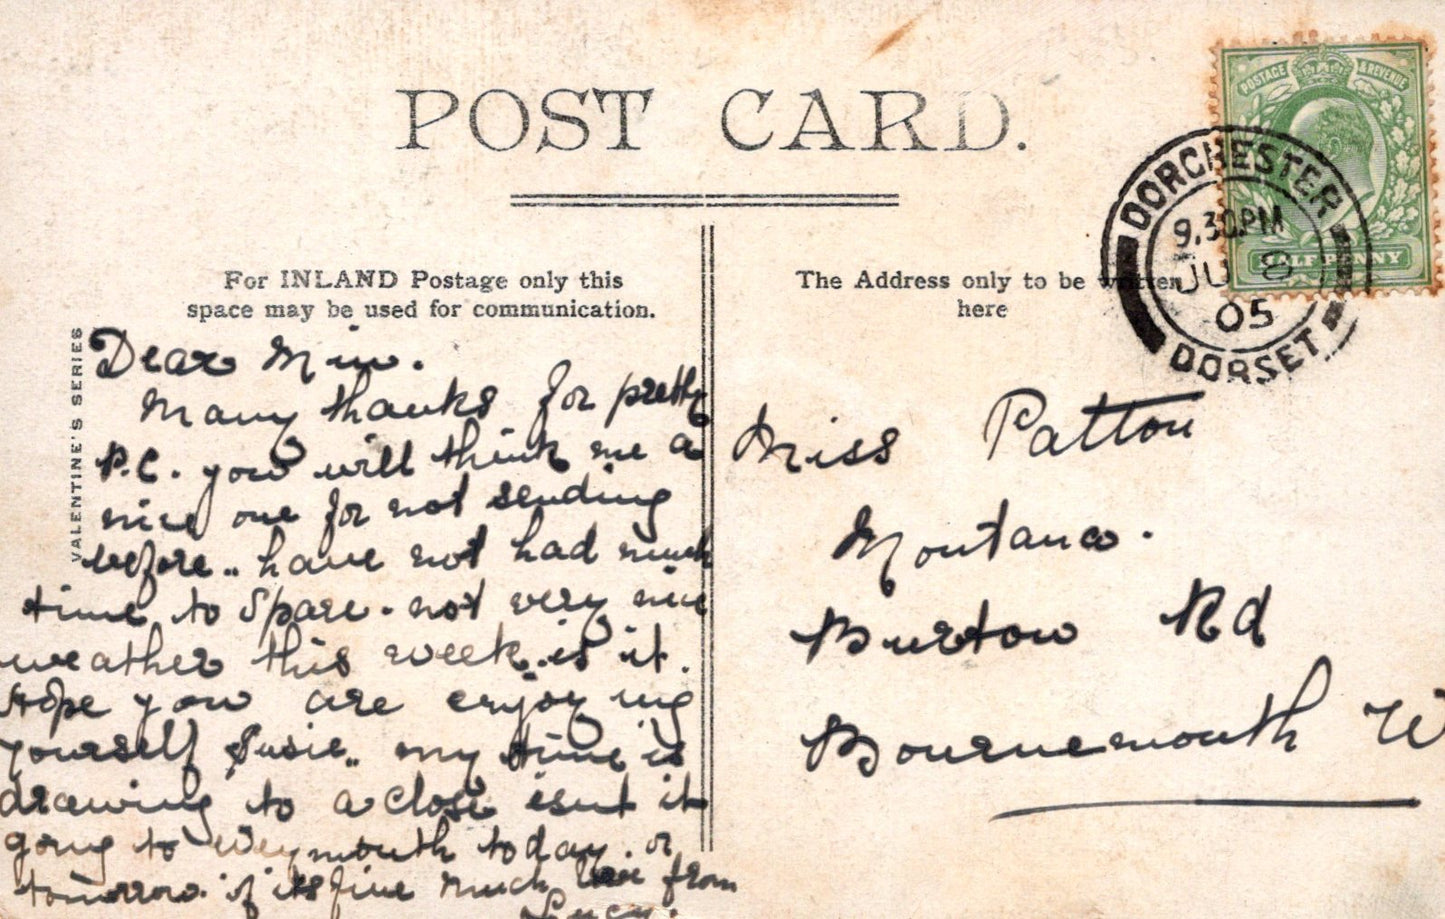 POST CARD.
For INLAND Postage only this
space may be used for communication.
The Address only to be written
here
VALENTINE'S SERIES
POSTAGE & REVENUE
HALFPENNY
DORCHESTER
9.30PM
JU 8
05
DORSET
Dear Min.
Many thanks for pretty
P.C. you will think me a
nice one for not sending
before.. have not had much
time to spare. not very nice
weather this week. is it.
Hope you are enjoying
yourself Susie.. my time is
drawing to a close isnt it
going to Weymouth today. or
tomorrow. if its fine much love from
Lucy.
Miss Patton
Montana.
Burton Rd
Bournemouth W